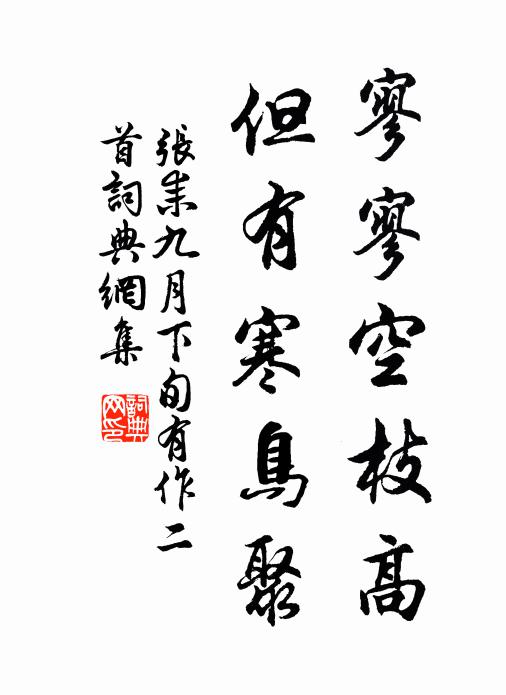 寥寥空枝高
但有寒鳥聚
張耒九月下旬有作二
首詞典網集
詞典網印